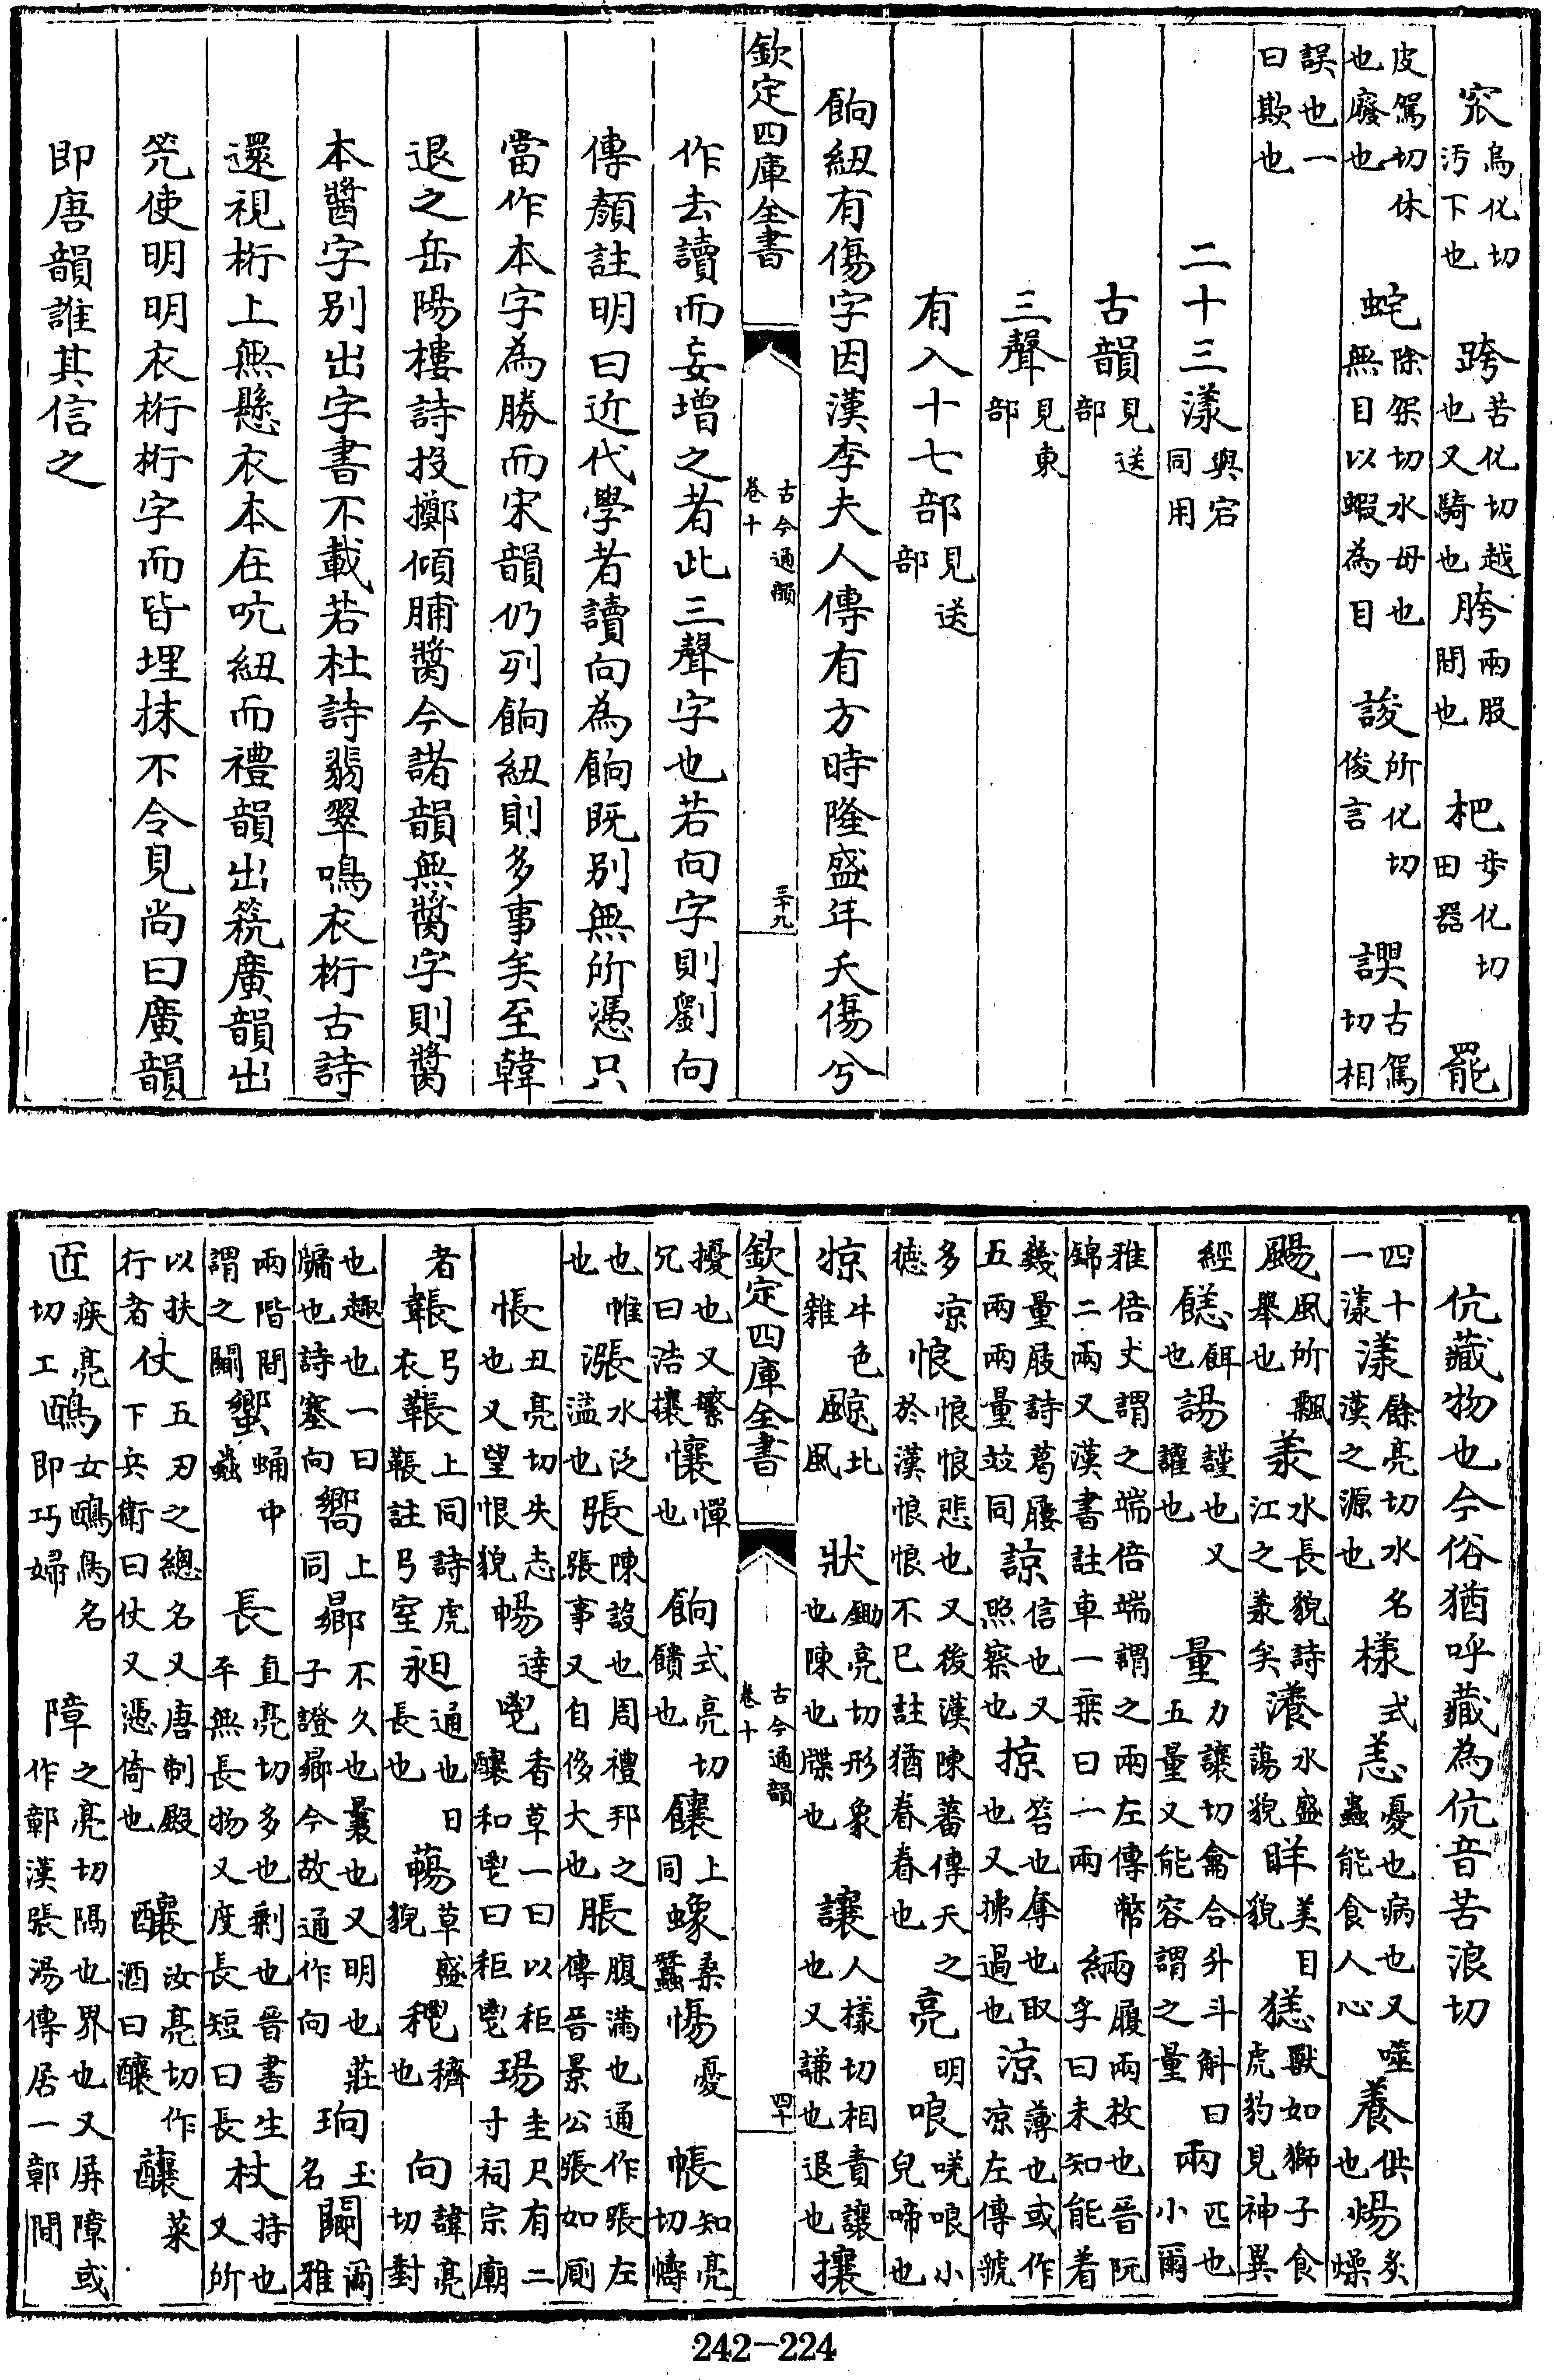 窊烏化切汚下也 跨苦化切越也又騎也 胯兩股間也 杷步化切田器 罷
皮駕切休也廢也 蛇除架切水母也無目以蝦為目 誜所化切俊言 謨古駕切相
誤也一曰欺也
二十三漾與宕同用
古韻見送部
三聲見東部
有入十七部見送部
餉紐有傷字因漢李夫人傳有方時隆盛年夭傷兮
欽定四庫全書
古今通韻卷十
三十九
作去讀而妄增之者此三聲字也若向字則劉向
傳顏註明曰近代學者讀向為餉既別無所憑只
當作本字為勝而宋韻仍列餉紐則多事矣至韓
退之岳陽樓詩投擲傾脯醬今諸韻無醬字則醬
本醬字別出字書不載若杜詩翡翠鳴衣桁古詩
還視桁上無懸衣本在吭紐而禮韻出筦廣韻出
筅使明明衣桁桁字而皆埋抹不令見尚曰廣韻
即唐韻誰其信之
伉藏物也今俗猶呼藏為伉音苦浪切
四十一漾漾餘亮切水名漢之源也 樣式 恙憂也病也又噬蟲能食人心 養供也 煬炙燥
颺風所飄舉也 羕水長貌詩江之羕矣 瀁水盛蕩貌 眻美目貌 㺊獸如獅子食虎豹見神異
經 𩜾餌也 諹謹也又讙也 量力讓切龠合升斗斛曰五量又能容謂之量 兩匹也小爾
雅倍丈謂之端倍端謂之兩左傳幣錦二兩又漢書註車一乘曰一兩 緉履兩枚也晉阮孚曰未知能着
幾量屐詩葛屨五兩兩量竝同 諒信也又照察也 掠笞也奪也取也又拂過也 涼薄也或作凉左傳虢
多凉德 悢悢悢悲也又後漢陳蕃傳天之於漢悢悢不已註猶眷眷也 亮明 哴唴哴小兒啼也
㹁牛色雜 飉北風 狀鋤亮切形象也陳也牒也 讓人樣切相責讓也又謙也退也 攘
欽定四庫全書
古今通韻卷十
四十
擾也又繁兄曰浩攘 懹憚也 餉式亮切饋也 饟上同 蠰桑蠶 愓憂 帳知亮切幬
也帷也 漲水泛溢也 張陳設也周禮邦之張事又自侈大也 脹腹滿也通作張左傳晉景公張如厠
悵丑亮切失志也又望恨貌 暢達 鬯香草一曰以秬釀和鬯曰秬鬯 瑒圭尺有二寸祠宗廟
者 韔弓衣 鞖上同詩虎韔註弓室 昶通也日永長也 蕩草盛貌 𥠴穧也 向諱亮切對
也趣也一曰牖也詩塞向 嚮上同 鄉不久也曩也又明也莊子證鄉今故通作向 珦玉名 闠爾雅
兩階間謂之闠 蠁蛹中蟲 長直亮切多也剩也晉書生平無長物又度長短曰長 杖持也又所
以扶行者 仗五刃之總名又唐制殿下兵衛曰仗又憑倚也 釀汝亮切作酒曰釀 䕩菜
匠疾亮切工 鴹女鴹鳥名即巧婦 障之亮切隔也界也又屏障或作鄣漢張湯傳居一鄣間
242-224